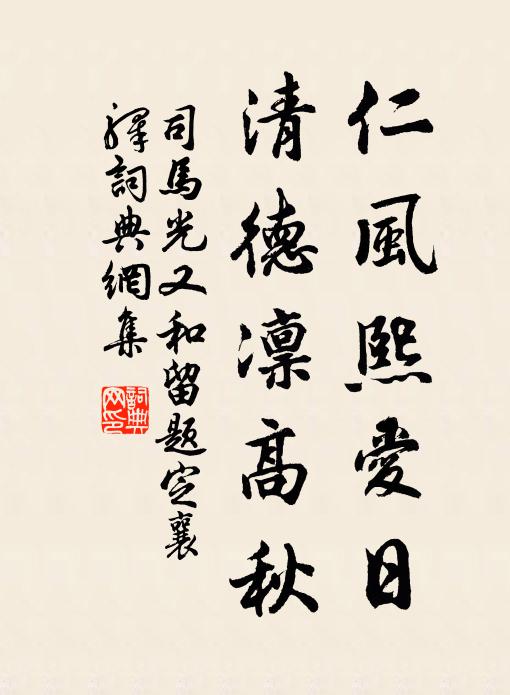 仁風熙愛日
清德凜高秋
司馬光又和留題定襄
釋詞典網集
詞典网印